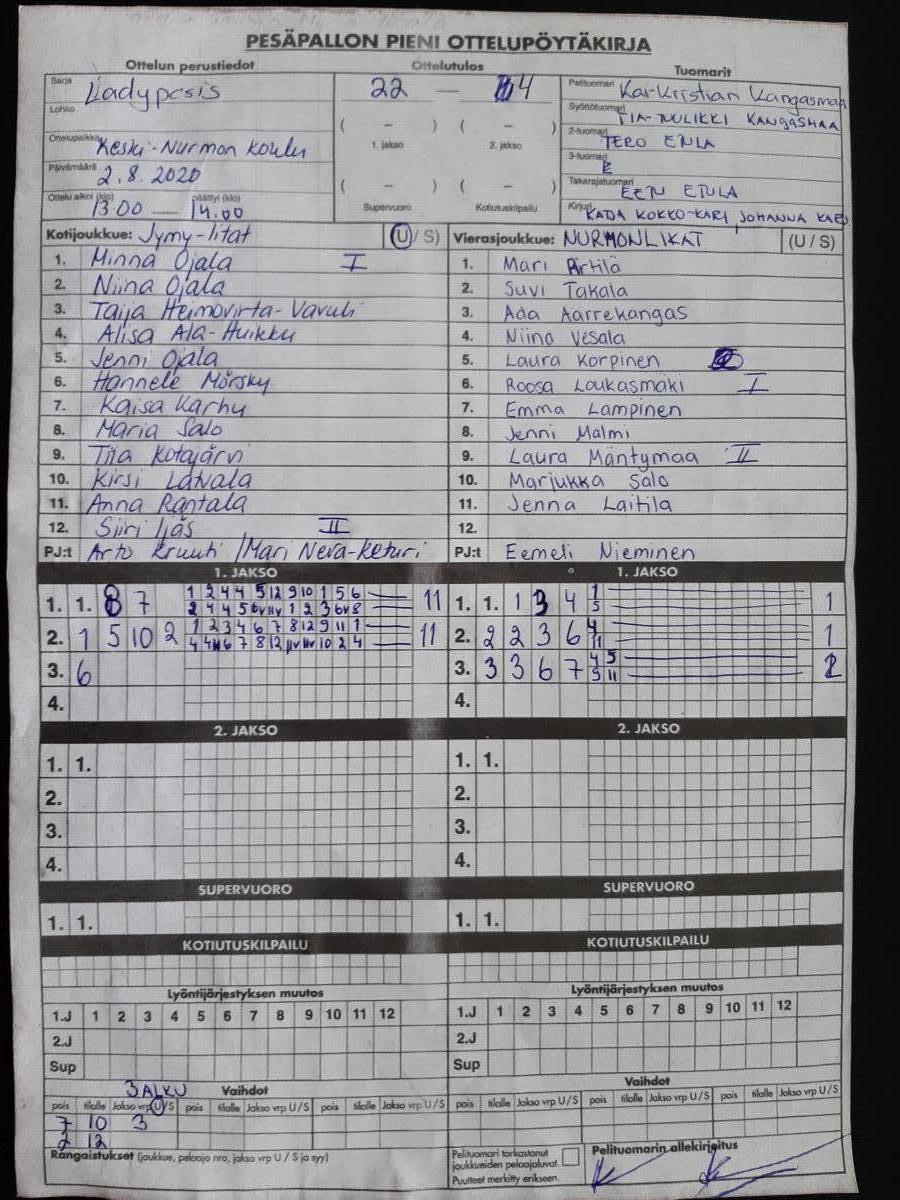 PESÄPALLON PIENI OTTELUPÖYTÄKIRJA
Ottelun perustiedot Ottelutulos Tuomarit
Sarja Ladypesis 22 — 4 Pelituomari Kai-Kristian Kangasmaa
Lohko Syöttötuomari TIA-TUULIKKI KANGASMAA
( – ) ( – )
Ottelupaikka Keski-Nurmon koulu 1. jakso 2. jakso 2-tuomari TERO
Päivämäärä 2.8.2020 3-tuomari
( – ) ( – ) Takarajatuomari EETU
Ottelu alkoi (klo) 13.00 — päättyi (klo) 14.00 Supervuoro Kotiutuskilpailu Kirjuri KOKKO-KARI, JOHANNA
Kotijoukkue: Jymy-litat (U / S) Vierasjoukkue: NURMONLIKAT (U / S)
1. Minna Ojala I 1. Mari Pirtilä
2. Niina Ojala 2. Suvi Takala
3. Taija Heimovirta- 3. Ada Aarrekangas
4. Alisa Ala-Huikku 4. Niina Vesala
5. Jenni Ojala 5. Laura Korpinen
6. Hannele Mörsky 6. Roosa Loukasmäki I
7. Kaisa Karhu 7. Emma Lampinen
8. Maria Salo 8. Jenni Malmi
9. Tiia Kotajärvi 9. Laura Mäntymaa II
10. Kirsi Latvala 10. Marjukka Salo
11. Anna Rantala 11. Jenna Laitila
12. Siiri Ijäs II 12.
PJ:t Arto Kruuti / Mari Neva-Keturi PJ:t Eemeli Nieminen
1. JAKSO 1. JAKSO
1. 1. 8 7 1 2 4 4 5 12 9 10 1 5 6 11 1. 1. 1 3 4 1 1
2 4 4 5 1 2 3 8 5
2. 1 5 10 2 1 2 3 4 6 7 8 12 9 11 1 11 2. 2 2 3 6 4 1
4 6 7 8 12 10 2 4 11
3. 6 3. 3 3 6 7 4 5 2
5 11
4. 4.
2. JAKSO 2. JAKSO
1. 1. 1. 1.
2. 2.
3. 3.
4. 4.
SUPERVUORO SUPERVUORO
1. 1. 1. 1.
KOTIUTUSKILPAILU KOTIUTUSKILPAILU
Lyöntijärjestyksen muutos Lyöntijärjestyksen muutos
1.J 1 2 3 4 5 6 7 8 9 10 11 12 1.J 1 2 3 4 5 6 7 8 9 10 11 12
2.J 2.J
Sup Sup
3ALKU Vaihdot Vaihdot
pois tilalle Jakso vrp U/S pois tilalle Jakso vrp U/S pois tilalle Jakso vrp U/S pois tilalle Jakso vrp U/S pois tilalle Jakso vrp U/S pois tilalle Jakso vrp U/S
7 10 3
2 12
Rangaistukset (joukkue, pelaaja nro, jakso vrp U / S ja syy) Pelituomari tarkastanut joukkueiden pelaajaluvat. Puutteet merkitty erikseen. Pelituomarin allekirjoitus